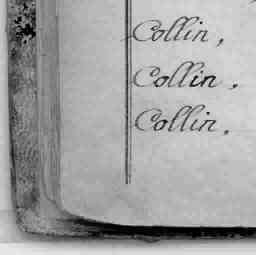 Collin,
Collin.
Collin.